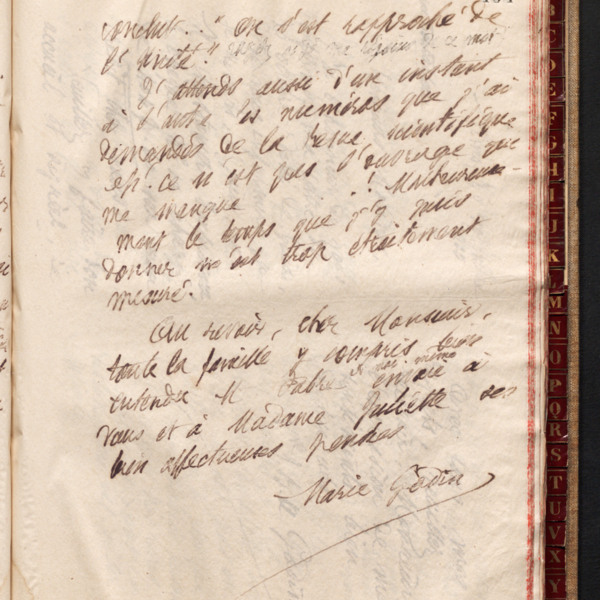 conclut... " On s'est rapproché de
l'unité."
J'attends aussi d'un instant
à l'autre les numéros que j'ai
demandés de la revue scientifique
est-ce n'est pas l'ouvrage qui
me manque ! Malheureuse-
ment le temps que j'y puis
donner m'est trop étroitement
mesuré.
Au revoir, cher Monsieur,
toute la famille y compris bien
entendu M Fabre et moi même envoie à
vous et à Madame Juliette ses
bien affectueuses pensées
Marie Godin
B
C
D
E
F
G
H
I
J
K
L
M
N
O
P
Q
R
S
T
U
V
X
Y